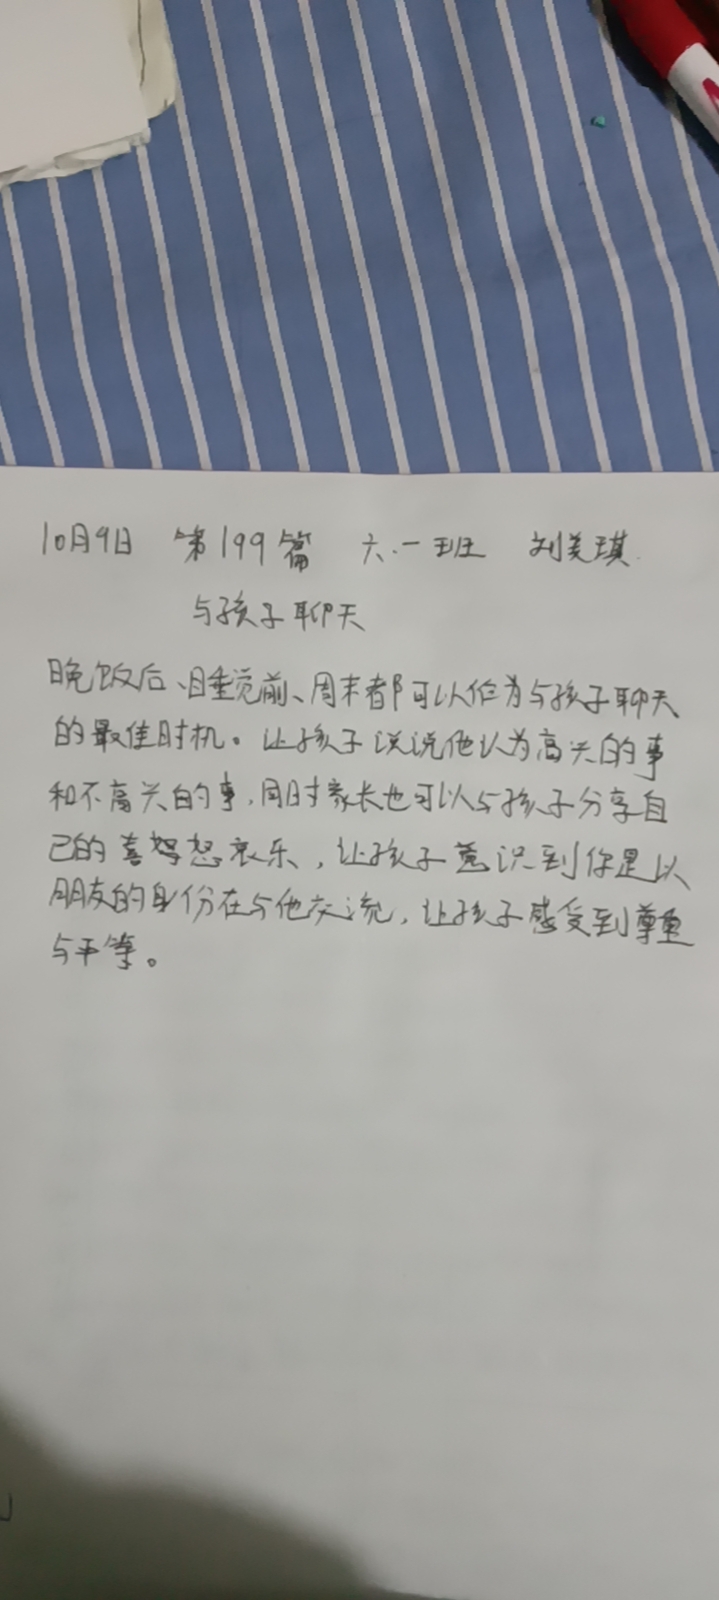 10月9日 第199篇 六.一班 刘美琪.
与孩子聊天
晚饭后、睡觉前、周末都可以作为与孩子聊天
的最佳时机。让孩子说说他认为高兴的事
和不高兴的事,同时家长也可以与孩子分享自
己的喜怒哀乐,让孩子意识到你是以
朋友的身份在与他交流,让孩子感受到尊重
与平等。